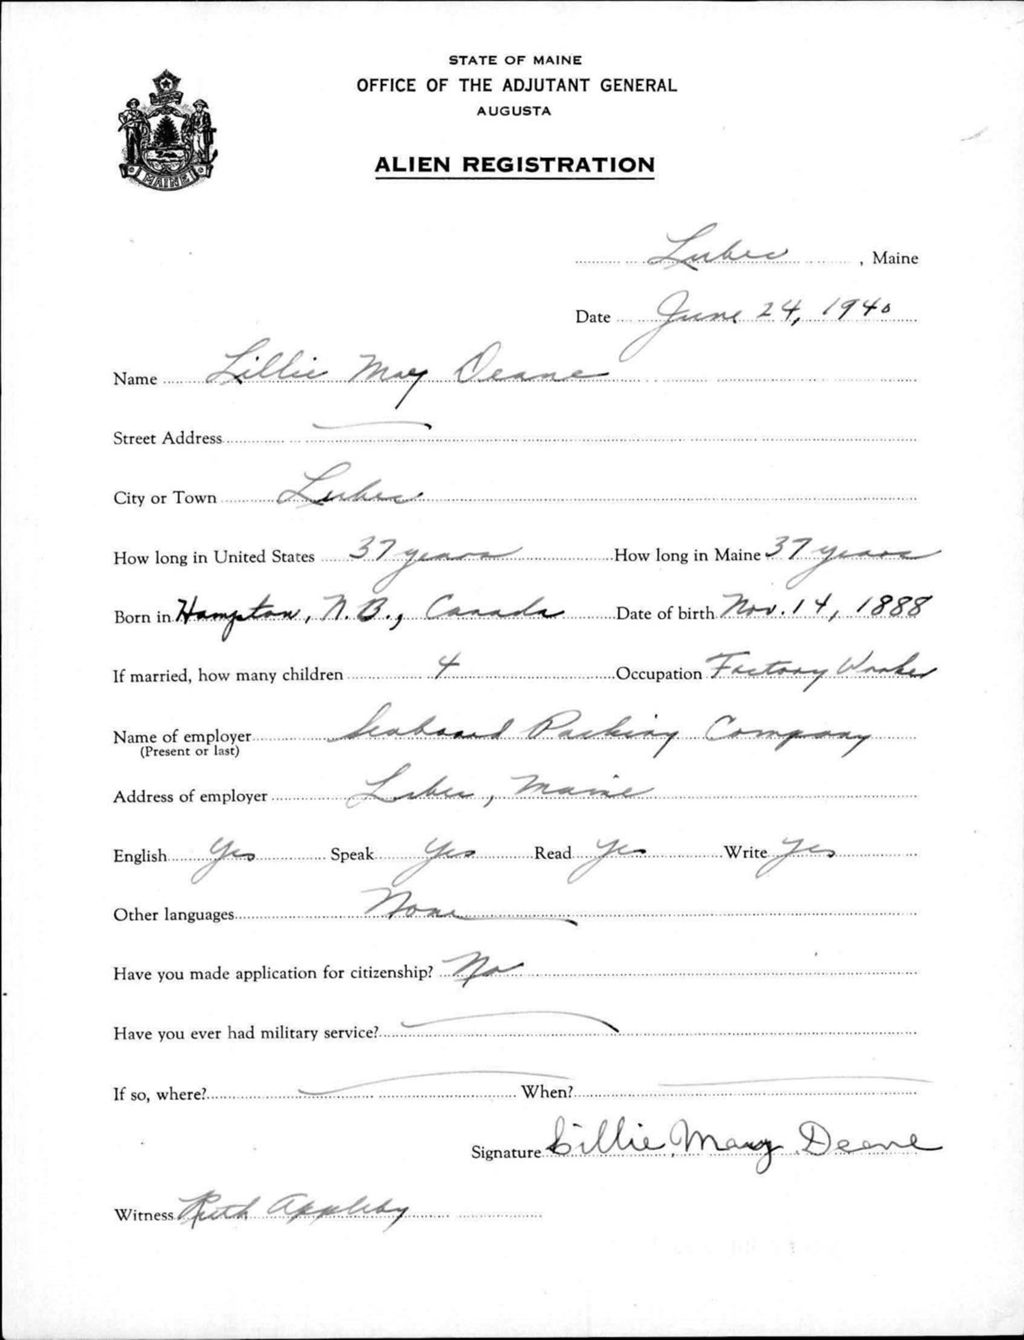 STATE OF MAINE
OFFICE OF THE ADJUTANT GENERAL
AUGUSTA
ALIEN REGISTRATION
MAINE
Lubec, Maine
Date June 24, 1940
Name Lillie May Deane
Street Address —
City or Town Lubec
How long in United States 37 years How long in Maine 37 years
Born in Hampton, N.B., Canada Date of birth Nov. 14, 1888
If married, how many children 4 Occupation Factory Worker
Name of employer Seaboard Packing Company
(Present or last)
Address of employer Lubec, Maine
English Yes Speak Yes Read Yes Write Yes
Other languages None
Have you made application for citizenship? No
Have you ever had military service? —
If so, where? — When? —
Signature Lillie May Deane
Witness Ruth Appleby